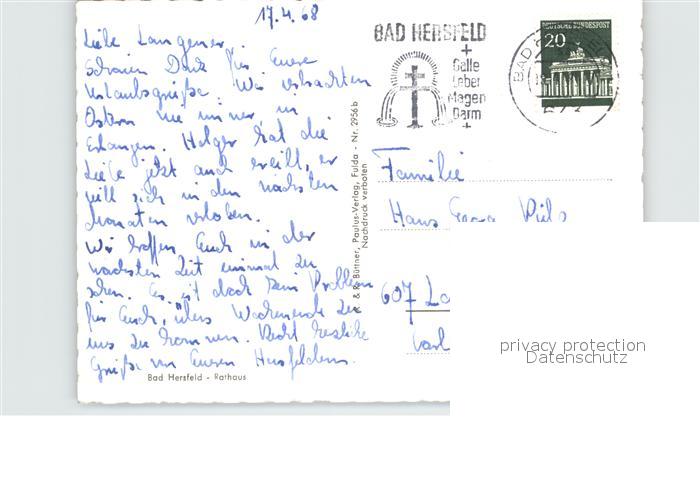 17.4.68
Liebe Langener.
Schönen Dank für Eure
Urlaubsgrüße. Wir verbrachten
Ostern wie immer in
Erlangen. Holger hat die
Liebe jetzt auch ereilt, er
will sich in den nächsten
Monaten verloben.
Wir hoffen Euch in der
nächsten Zeit einmal zu
sehen. Es ist doch kein Problem
für Euch, übers Wochenende zu
uns zu kommen. Recht herzliche
Grüße von Euren Hersfeldern.
Bad Hersfeld - Rathaus
K. & R. Büttner, Paulus-Verlag, Fulda - Nr. 2956 b
Nachdruck verboten
BAD HERSFELD
+
Galle
Leber
Magen
Darm
+
DEUTSCHE BUNDESPOST
20
BAD
Familie
Hans Georg
607 La
privacy protection
Datenschutz